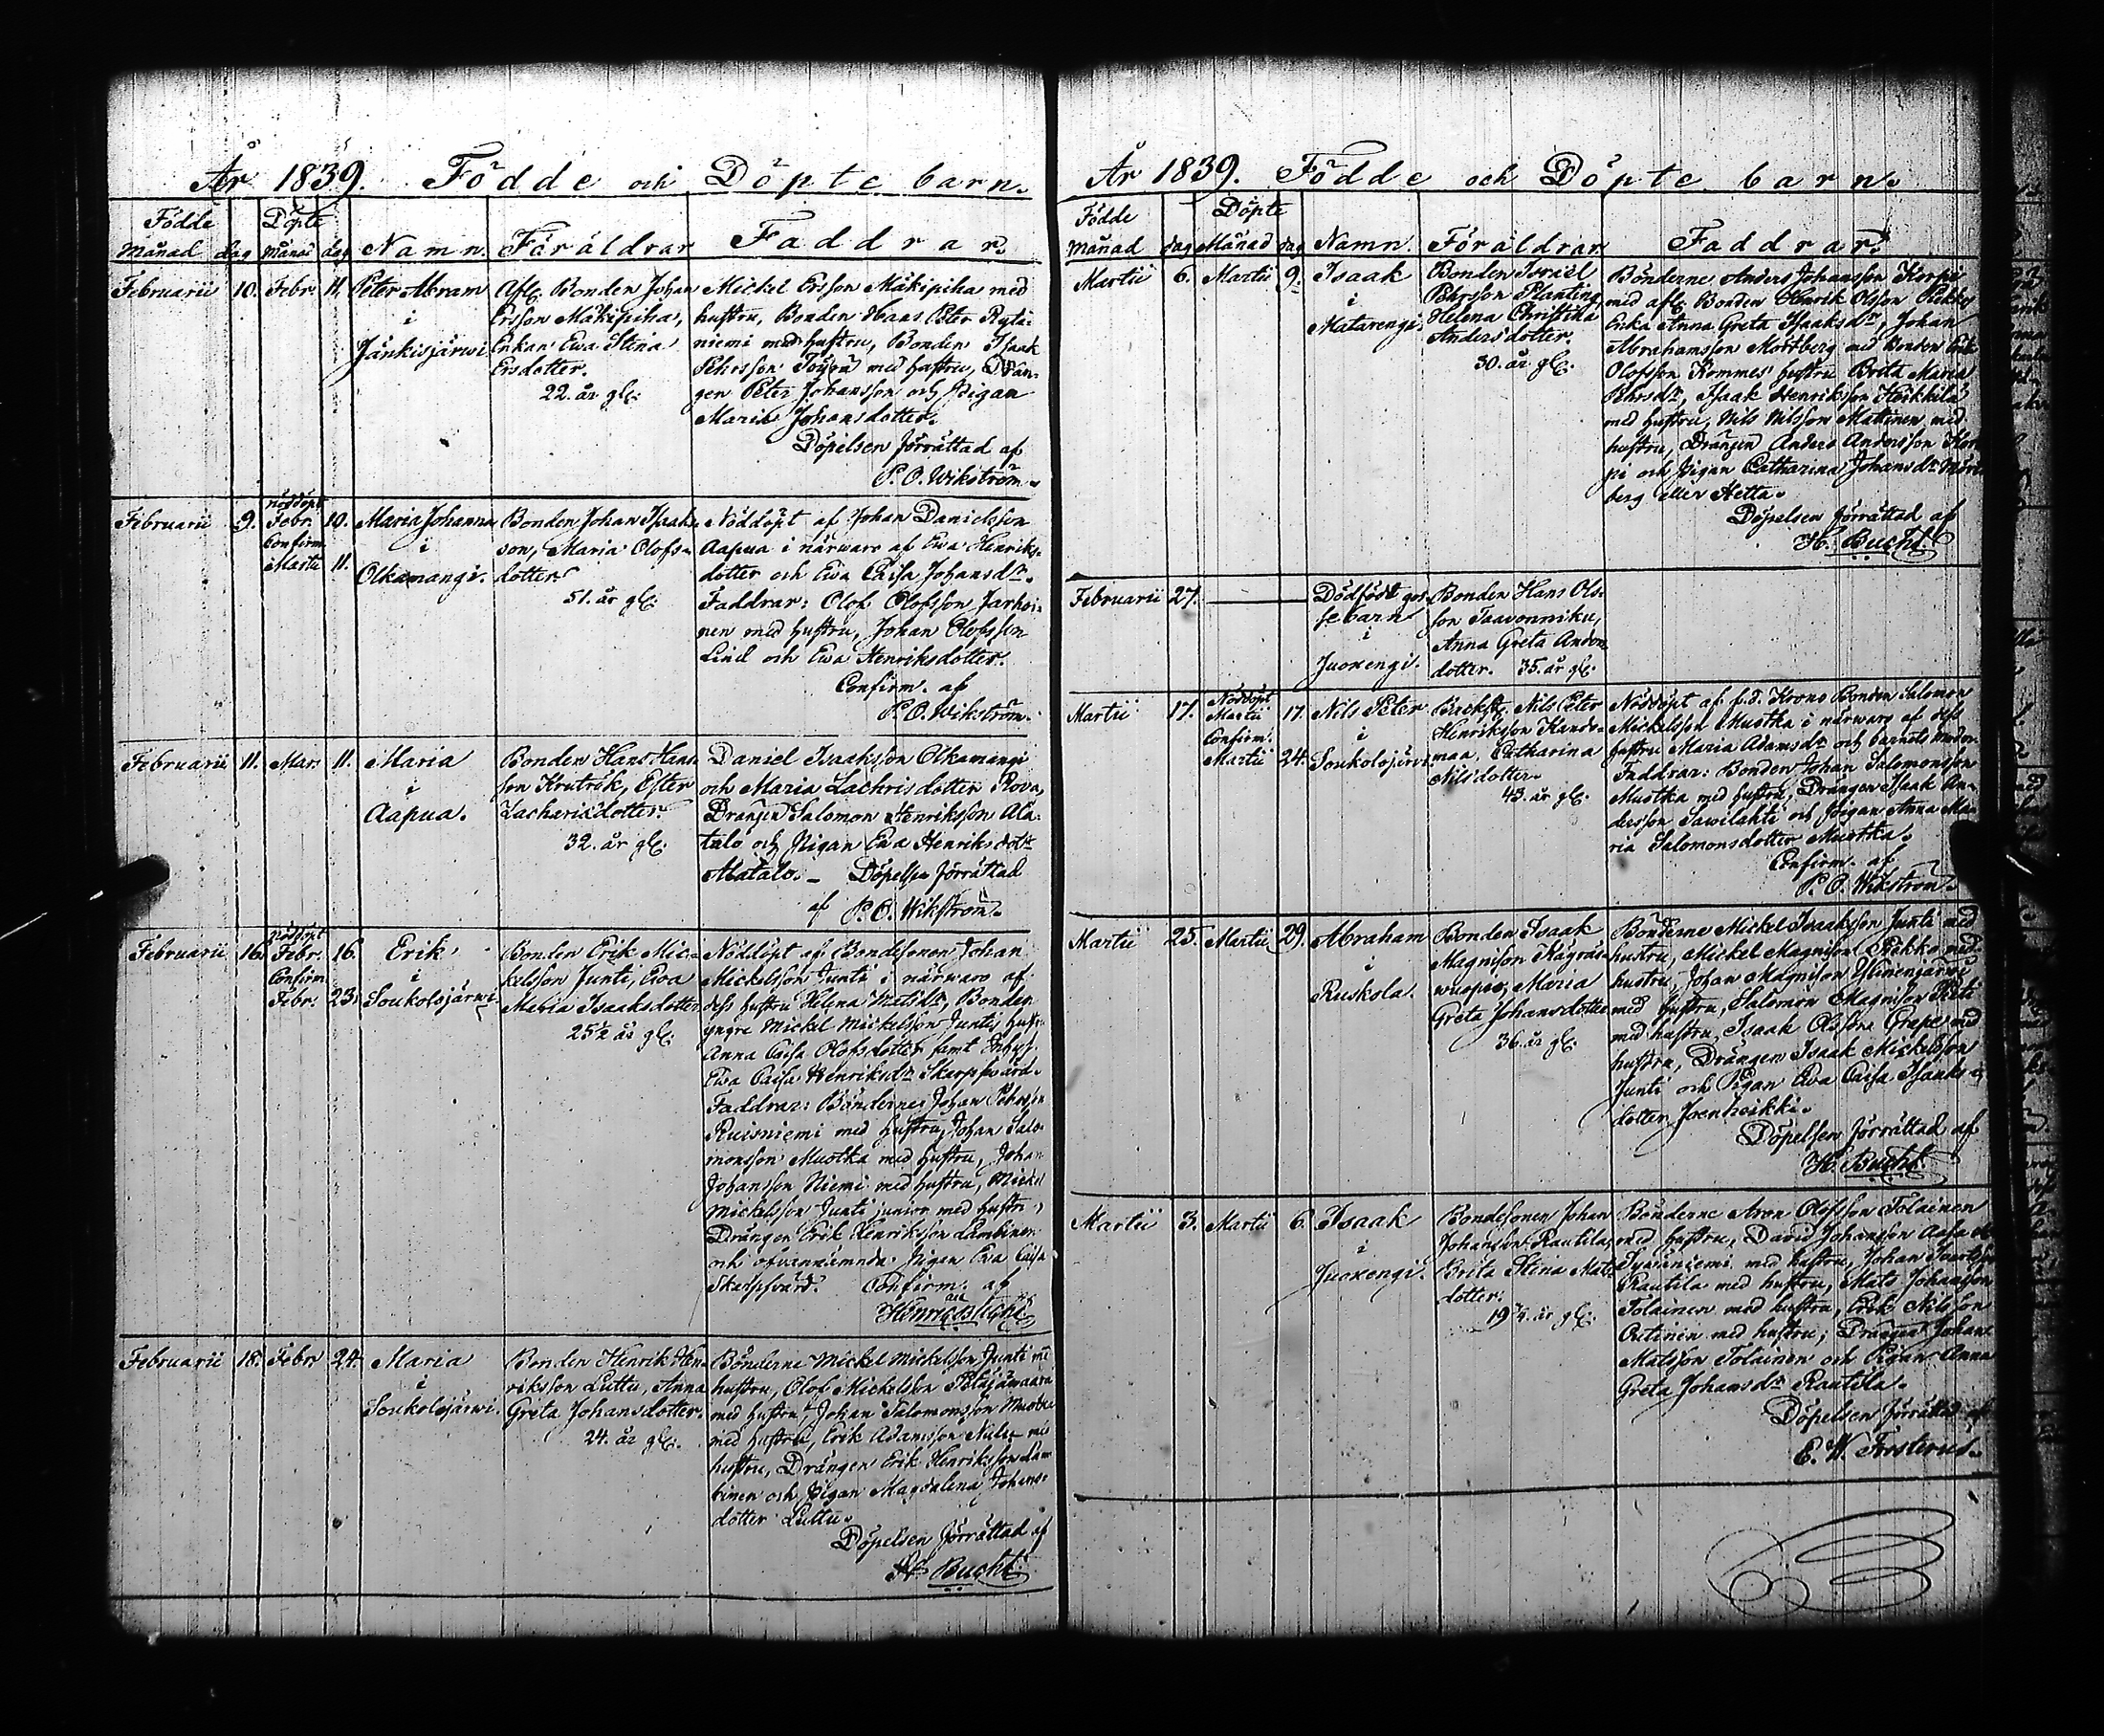 År 1839. Födde och Döpte barn.
Födde Döpte
Månad dag Månad dag Namn. Föräldrar Faddrar.
Februarii 10. Febr. 11. Peter Abram
i
Jänkisjärwi
Afl. Bonden Johan
Ersson Mäkipiha,
Enkan Ewa Stina
Ersdotter.
22. år gl.
Mickel Ersson Mäkipiha med
hustru, Bonden Hans Peter Ryti-
niemi med hustru, Bonden Isaak
Pehrsson med hustru, Drän-
gen Peter Johansson och Pigan
Maria Johansdotter.
Döpelsen förrättad af
P. O. Wikström.
Februarii 9. nöddöpt
Febr. 10.
Confirm.
Martii 11.
Maria Johanna
i
Olkamangi.
Bonden Johan Isaaks-
son, Maria Olofs-
dotter
51. år gl.
Nöddöpt af Johan Danielsson
Aapua i närwaro af Ewa Henriks-
dotter och Ewa Caisa Johansdr.
Faddrar: Olof Olofsson Jarhoi-
nen med hustru, Johan Olofsson
Lind och Ewa Henriksdotter.
Confirm. af
P. O. Wikström.
Februarii 11. Mars 11. Maria
i
Aapua.
Bonden Hans Hans-
son Krutrök, Ester
Zacharisdotter.
32. år gl.
Daniel Isaaksson Olkamangi
och Maria Zachrisdotter Rova,
Drängen Salomon Henriksson Ala-
talo och Pigan Ewa Henriksdotr
Alatalo. — Döpelsen förrättad
af P. O. Wikström.
Februarii 16. Nöddöpt
Febr. 16.
Confirm.
Febr. 23.
Erik
i
Soukolojärwi
Bonden Erik Mic-
kelsson Junti, Ewa
Maria Isaaksdotter
25½ år gl.
Nöddöpt af Bondesonen Johan
Mickelsson Junti i närwaro af
dess hustru Helena Matsdr, Bonden
yngre Mickel Mickelsson Juntis hustr.
Anna Caisa Olofsdotter samt
Ewa Caisa Henriksdr Skarpswärd.
Faddrar: Bönderne Johan Pehrsson
Ruisniemi med hustru, Johan Salo-
monsson Muotka med hustru, Johan
Johansson Niemi med hustru, Mickel
Mickelsson Junti junior med hustru,
Drängen Erik Henriksson Lambinen
och ofvannämnda Pigan Ewa Caisa
Skarpswärd. Confirm. af
Henric Bucht
Februarii 18. Febr. 24. Maria
i
Soukolojärwi.
Bonden Henrik Hen-
riksson Luttu, Anna
Greta Johansdotter.
24. år gl.
Bönderne Mickel Mickelsson Junti med
hustru, Olof Mickelsson Petäjäwaara
med hustru, Johan Salomonsson Muotka
med hustru, Erik Adamsson med
hustru, Drängen Erik Henriksson Lam-
binen och Pigan Magdalena Johans-
dotter Luttu.
Döpelsen förrättad af
H. Bucht
År 1839. Födde och Döpte barn.
Födde Döpte
Månad dag Månad dag Namn. Föräldrar. Faddrar.
Martii 6. Martii 9. Isaak
i
Matarengi.
Bonden Israel
Pehrsson Planting,
Helena Christina
Andersdotter.
30. år gl.
Bönderne Anders Johansson Korpi
med afl. Bonden Henrik Olsson
Enka Anna Greta Isaaksdr, Johan
Abrahamsson Mortberg med Bonden
Olofsson Rommes hustru Brita Maria
Pehrsdr, Isaak Henriksson Heikkilä
med hustru, Nils Nilsson Mattinen med
hustru, Drängen Anders Andersson Kor-
pi och Pigan Catharina Johansdr Mört-
berg eller Hetta.
Döpelsen förrättad af
H. Bucht.
Februarii 27. Dödfödt gos-
sebarn
i
Juoxengi.
Bonden Hans Ols-
son Taavonniku,
Anna Greta Anders
dotter. 35. år gl.
Martii 17. Nöddöpt
Martii 17.
Confirm.
Martii 24.
Nils Peter
i
Soukolojärwi
Nils Peter
Henriksson Kando-
maa, Catharina
Nilsdotter.
43. år gl.
Nöddöpt af f.d. Krono Bonden Salomon
Mickelsson Muotka i närwaro af dess
hustru Maria Adamsdr och barnets moder.
Faddrar: Bonden Johan Salomonsson
Muotka med hustru, Drängen Isaak An-
dersson Sawilahti och Pigan Anna Ma-
ria Salomonsdotter Muotka.
Confirm. af
P. O. Wikström.
Martii 25. Martii 29. Abraham
i
Ruskola.
Bonden Isaak
Magnison Kägräi-
wuopio, Maria
Greta Johansdotter
36. år gl.
Bönderne Mickel Isaaksson Junti med
hustru, Mickel Magnison med
hustru, Johan Magnison
med hustru, Salomon Magnison
med hustru, Isaak Olsson Grape med
hustru, Drängen Isaak Mickelsson
Junti och Pigan Ewa Caisa Isaaks-
dotter Joenheikki.
Döpelsen förrättad af
H. Bucht.
Martii 3. Martii 6. Isaak
i
Juoxengi.
Bondesonen Johan
Johansson Rautila,
Brita Stina Mats-
dotter.
19¼. år gl.
Bönderne Aron Olofsson Tolainen
med hustru, David Johansson
med hustru, Johan
Rautila med hustru, Mats Johansson
Tolainen med hustru, Erik Nilsson
Outinen med hustru, Drängen Johan
Matsson Tolainen och Pigan Anna
Greta Johansdr Rautila.
Döpelsen förrättad af
E. W. Forsterus.